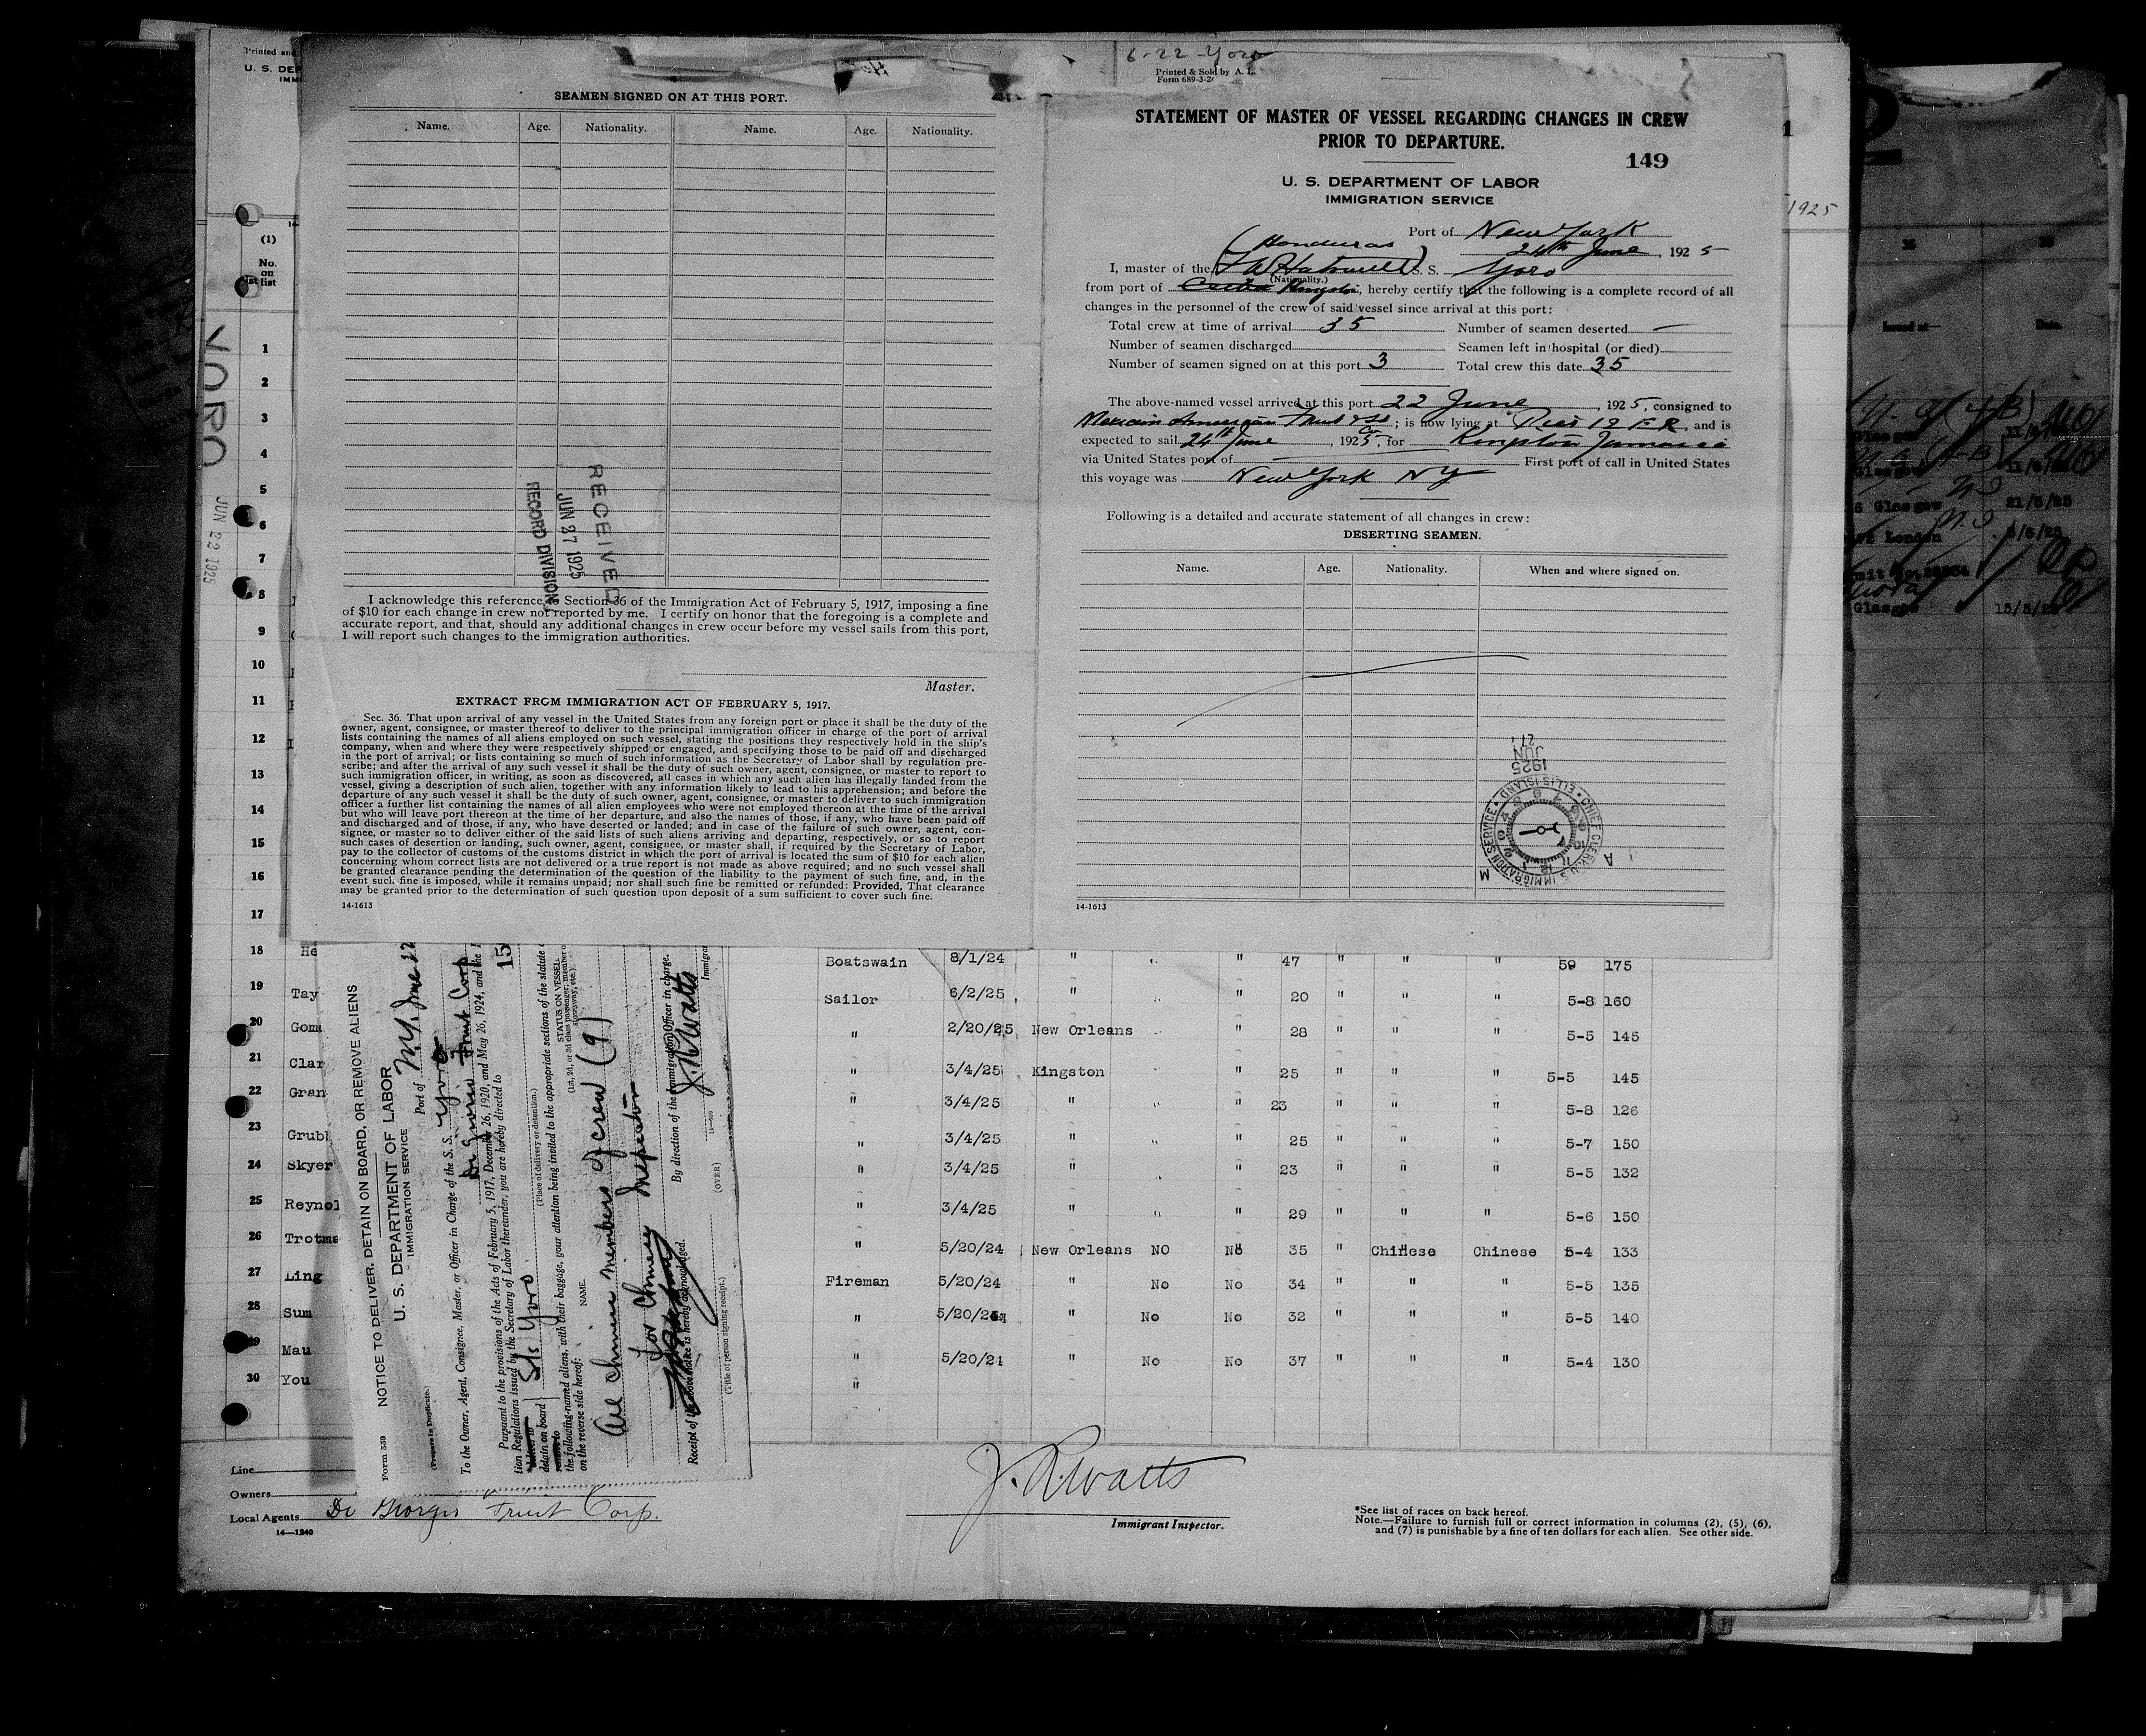 6-22 Yoro
Printed & Sold by A. L.
Form 689-3-2
SEAMEN SIGNED ON AT THIS PORT.
Name. Age. Nationality. Name. Age. Nationality.
RECEIVED
JUN 27 1925
RECORD DIVISION
I acknowledge this reference to Section 36 of the Immigration Act of February 5, 1917, imposing a fine
of $10 for each change in crew not reported by me. I certify on honor that the foregoing is a complete and
accurate report, and that, should any additional changes in crew occur before my vessel sails from this port,
I will report such changes to the immigration authorities.
Master.
EXTRACT FROM IMMIGRATION ACT OF FEBRUARY 5, 1917.
Sec. 36. That upon arrival of any vessel in the United States from any foreign port or place it shall be the duty of the
owner, agent, consignee, or master thereof to deliver to the principal immigration officer in charge of the port of arrival
lists containing the names of all aliens employed on such vessel, stating the positions they respectively hold in the ship's
company, when and where they were respectively shipped or engaged, and specifying those to be paid off and discharged
in the port of arrival; or lists containing so much of such information as the Secretary of Labor shall by regulation pre-
scribe; and after the arrival of any such vessel it shall be the duty of such owner, agent, consignee, or master to report to
such immigration officer, in writing, as soon as discovered, all cases in which any such alien has illegally landed from the
vessel, giving a description of such alien, together with any information likely to lead to his apprehension; and before the
departure of any such vessel it shall be the duty of such owner, agent, consignee, or master to deliver to such immigration
officer a further list containing the names of all alien employees who were not employed thereon at the time of the arrival
but who will leave port thereon at the time of her departure, and also the names of those, if any, who have been paid off
and discharged and of those, if any, who have deserted or landed; and in case of the failure of such owner, agent, con-
signee, or master so to deliver either of the said lists of such aliens arriving and departing, respectively, or so to report
such cases of desertion or landing, such owner, agent, consignee, or master shall, if required by the Secretary of Labor,
pay to the collector of customs of the customs district in which the port of arrival is located the sum of $10 for each alien
concerning whom correct lists are not delivered or a true report is not made as above required; and no such vessel shall
be granted clearance pending the determination of the question of the liability to the payment of such fine, and, in the
event such fine is imposed, while it remains unpaid; nor shall such fine be remitted or refunded: Provided, That clearance
may be granted prior to the determination of such question upon deposit of a sum sufficient to cover such fine.
14-1613
STATEMENT OF MASTER OF VESSEL REGARDING CHANGES IN CREW
PRIOR TO DEPARTURE.
149
U. S. DEPARTMENT OF LABOR
IMMIGRATION SERVICE
Port of New York
Honduras 24th June, 1925
I, master of the S. S. Yoro
(Nationality.)
from port of Kingston, hereby certify that the following is a complete record of all
changes in the personnel of the crew of said vessel since arrival at this port:
Total crew at time of arrival 35 Number of seamen deserted —
Number of seamen discharged Seamen left in hospital (or died)
Number of seamen signed on at this port 3 Total crew this date 35
The above-named vessel arrived at this port 22 June, 1925, consigned to
Mexican American Fruit & SS Co; is now lying at Pier 19 E R, and is
expected to sail 24th June, 1925, for Kingston Jamaica
via United States port of — First port of call in United States
this voyage was New York NY
Following is a detailed and accurate statement of all changes in crew:
DESERTING SEAMEN.
Name. Age. Nationality. When and where signed on.
1925
JUN
27
CHIEF CLERK U.S. IMMIGRATION SERVICE ELLIS ISLAND
14-1613
Printed and
U. S. DE
IMM
1925
(1)
No.
on
list
YORO
JUN 22 1925
1
2
3
4
5
6
7
8
9
10
11
12
13
14
15
16
17
18 He Boatswain 8/1/24 " " 47 " " " 59 175
19 Tay Sailor 6/2/25 " " 20 " " " 5-8 160
20 Gom " 2/20/25 New Orleans " 28 " " " 5-5 145
21 Clar " 3/4/25 Kingston " 25 " " " 5-5 145
22 Gran " 3/4/25 " " 23 " " " 5-8 126
23 Grub " 3/4/25 " " 25 " " " 5-7 150
24 Skyer " 3/4/25 " " 23 " " " 5-5 132
25 Reynol " 3/4/25 " " 29 " " " 5-6 150
26 Trotma " 5/20/24 New Orleans NO No 35 " Chinese Chinese 5-4 133
27 Ling Fireman 5/20/24 " No No 34 " " " 5-5 135
28 Sum " 5/20/24 " No No 32 " " " 5-5 140
29 Mau " 5/20/24 " No No 37 " " " 5-4 130
30 You "
Form 539
NOTICE TO DELIVER, DETAIN ON BOARD, OR REMOVE ALIENS
U. S. DEPARTMENT OF LABOR
IMMIGRATION SERVICE
(Prepare in Duplicate.)
Port of N.Y. June 22
To the Owner, Agent, Consignee, Master, or Officer in Charge of the S. S. Yoro
Di Giorgio Fruit Corp
Pursuant to the provisions of the Acts of February 5, 1917, December 26, 1920, and May 26, 1924, and the
tion Regulations issued by the Secretary of Labor thereunder, you are hereby directed to
15
detain on board S/S Yoro
(Place of delivery or detention.)
the following-named aliens, with their baggage, your attention being invited to the appropriate sections of the statute
on the reverse side hereof:
NAME. STATUS ON VESSEL
(1st, 2d, or 3d class passenger; member of
stowaway, etc.)
All Chinese members of crew (9)
For Chinese Inspector
By direction of the Immigration Officer in charge.
J. R. Watts
Immigra
Receipt of the above notice is hereby acknowledged.
(Title of person signing receipt.)
(OVER)
14-409
Line
Owners
Local Agents Di Giorgio Fruit Corp.
14—1240
J. R. Watts
Immigrant Inspector.
*See list of races on back hereof.
Note.—Failure to furnish full or correct information in columns (2), (5), (6),
and (7) is punishable by a fine of ten dollars for each alien. See other side.
2
35 36
Issued at— Date.
Glasgow
Glasgow 21/5/25
London 5/6/25
Glasgow 15/5/25